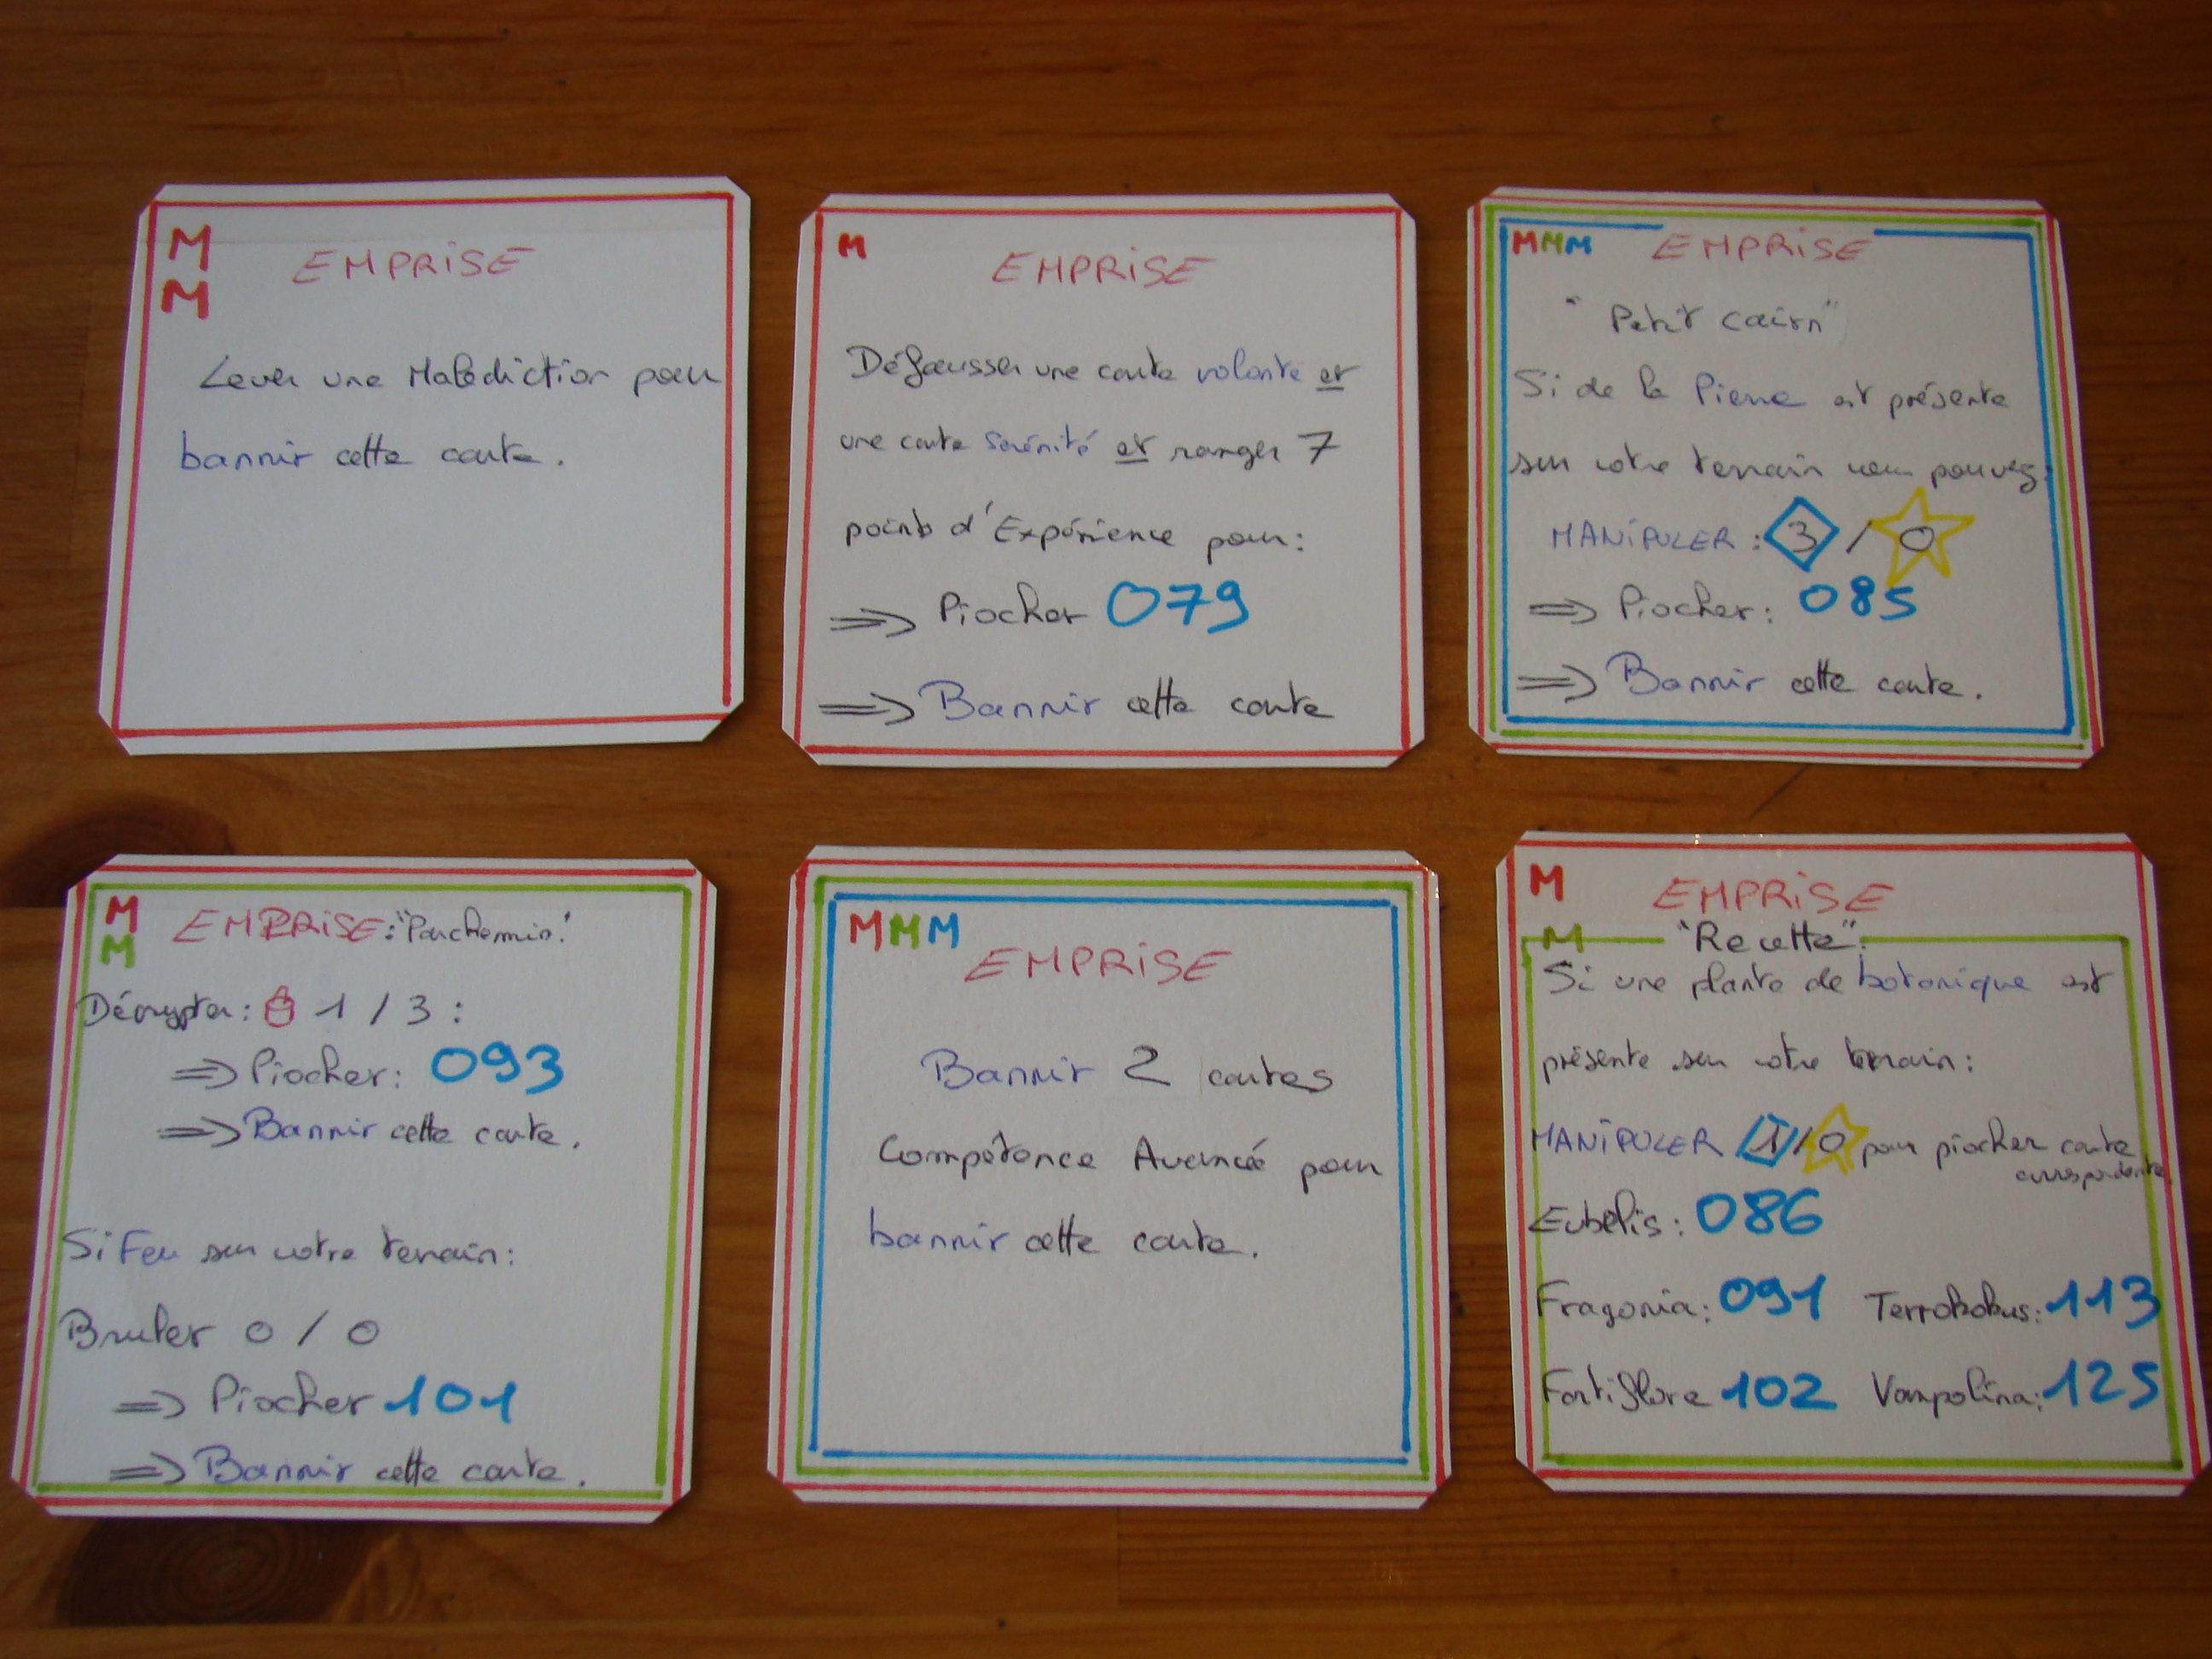 M
M
EMPRISE
Lever une Malédiction pour
bannir cette carte.
M
EMPRISE
Défausser une carte volonté et
une carte Sérénité et ranger 7
points d'Expérience pour:
⇒ Piocher 079
⇒ Bannir cette carte
MMM EMPRISE
"Petit cairn"
Si de la Pierre est présente
sur votre terrain vous pouvez:
MANIPULER : 3 / 0
⇒ Piocher: 085
⇒ Bannir cette carte.
M
M
EMPRISE: "Parchemin!
Décrypter: 1 / 3 :
⇒ Piocher: 093
⇒ Bannir cette carte.
Si Feu sur votre terrain:
Bruler 0 / 0
⇒ Piocher 101
⇒ Bannir cette carte.
MMM
EMPRISE
Bannir 2 cartes
Compétence Avancée pour
bannir cette carte.
M
EMPRISE
M "Recette":
Si une plante de botanique est
présente sur votre terrain:
MANIPULER 1/0 pour piocher carte
correspondante
Eubélis: 086
Fragonia: 091 Terrobobus: 113
Fortiflore 102 Vampolina: 125